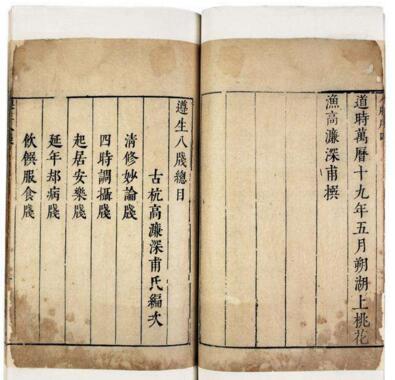 道時萬曆十九年五月朔湖上桃花
漁高濂深甫撰
遵生八牋總目
古杭高濂深甫氏編次
清修妙論牋
四時調攝牋
起居安樂牋
延年郤病牋
飲饌服食牋